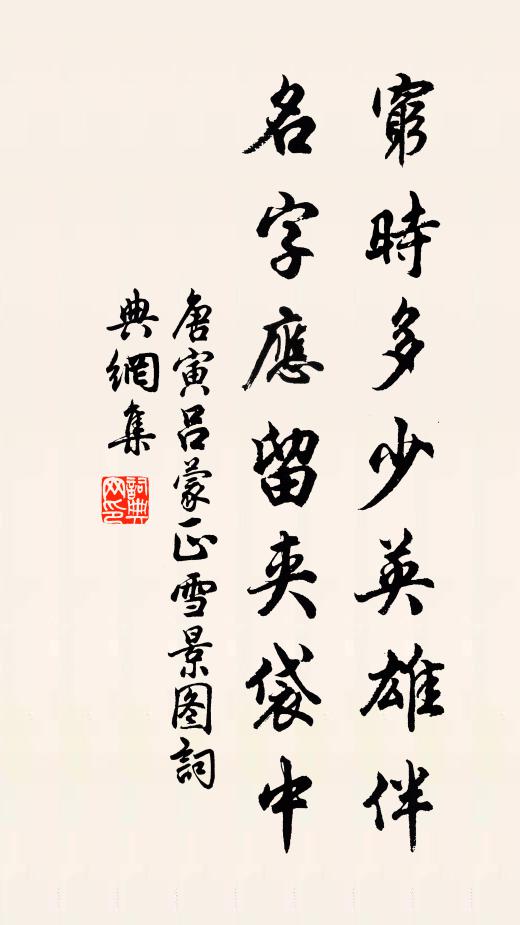 窮時多少英雄伴
名字應留夾袋中
唐寅吕蒙正雪景图詞
典網集
詞典网印